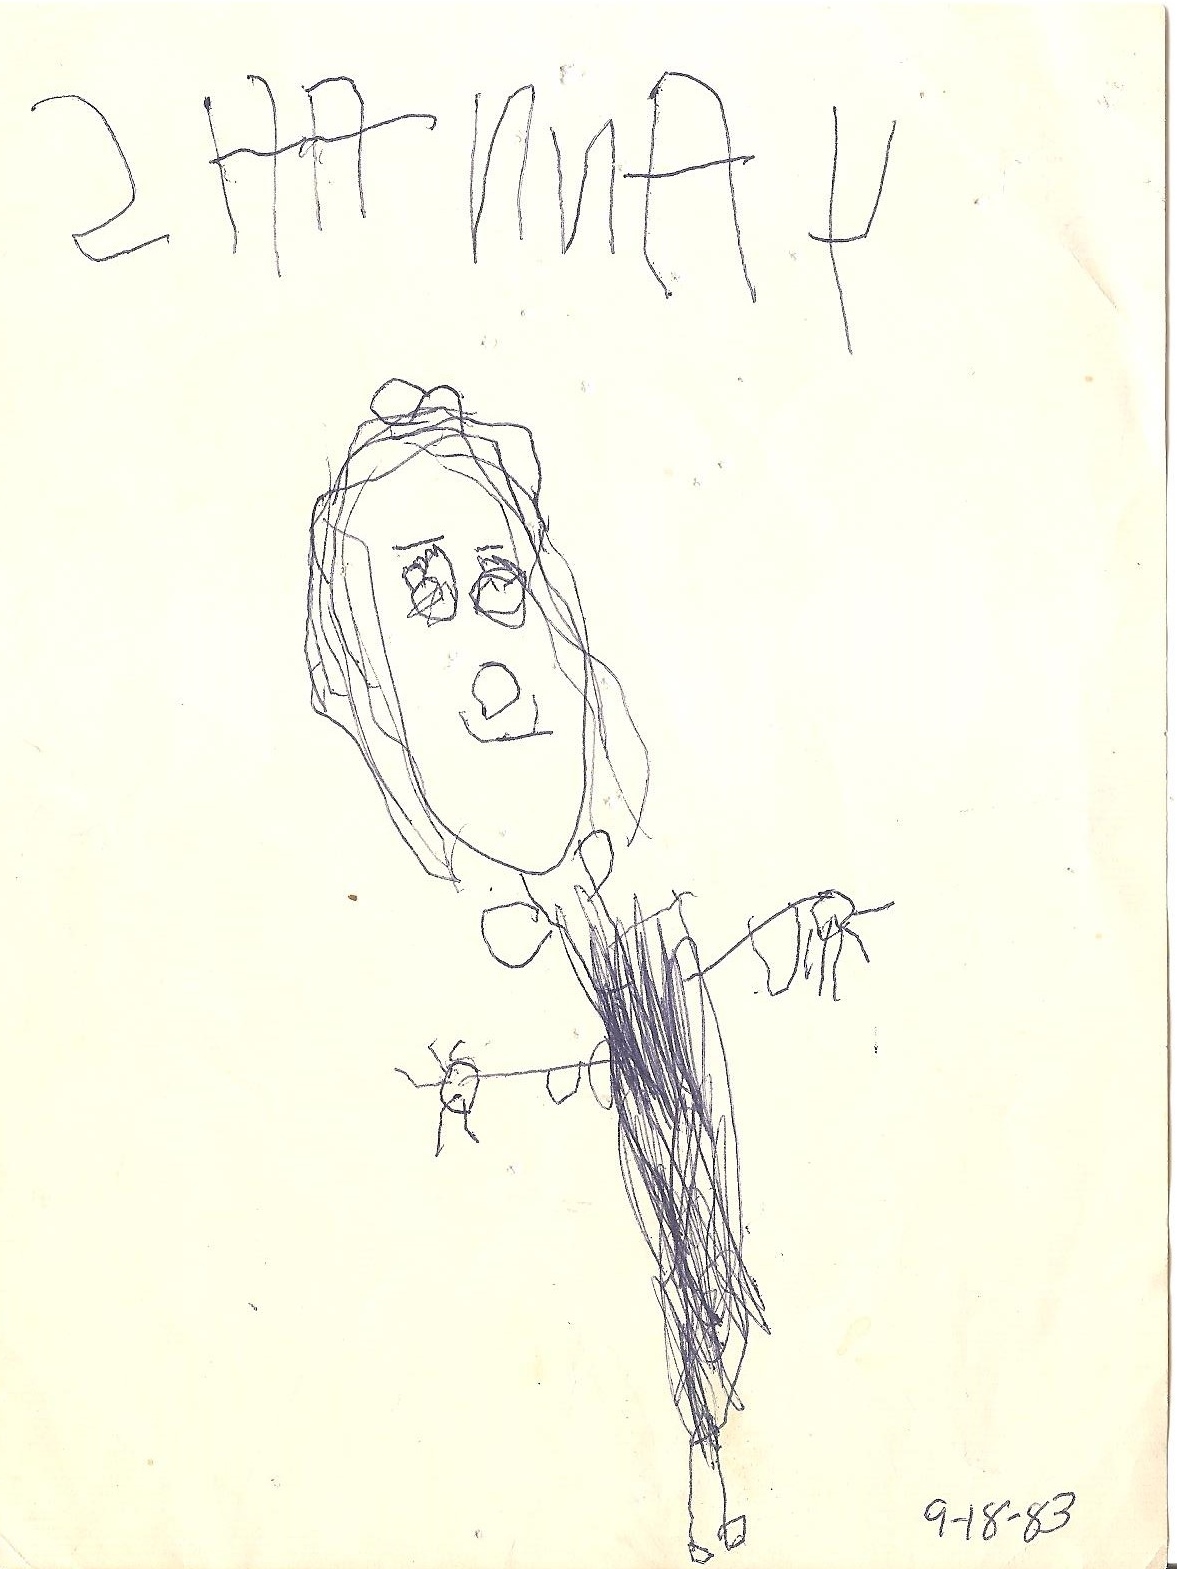 SHAnnA Y
9-18-83